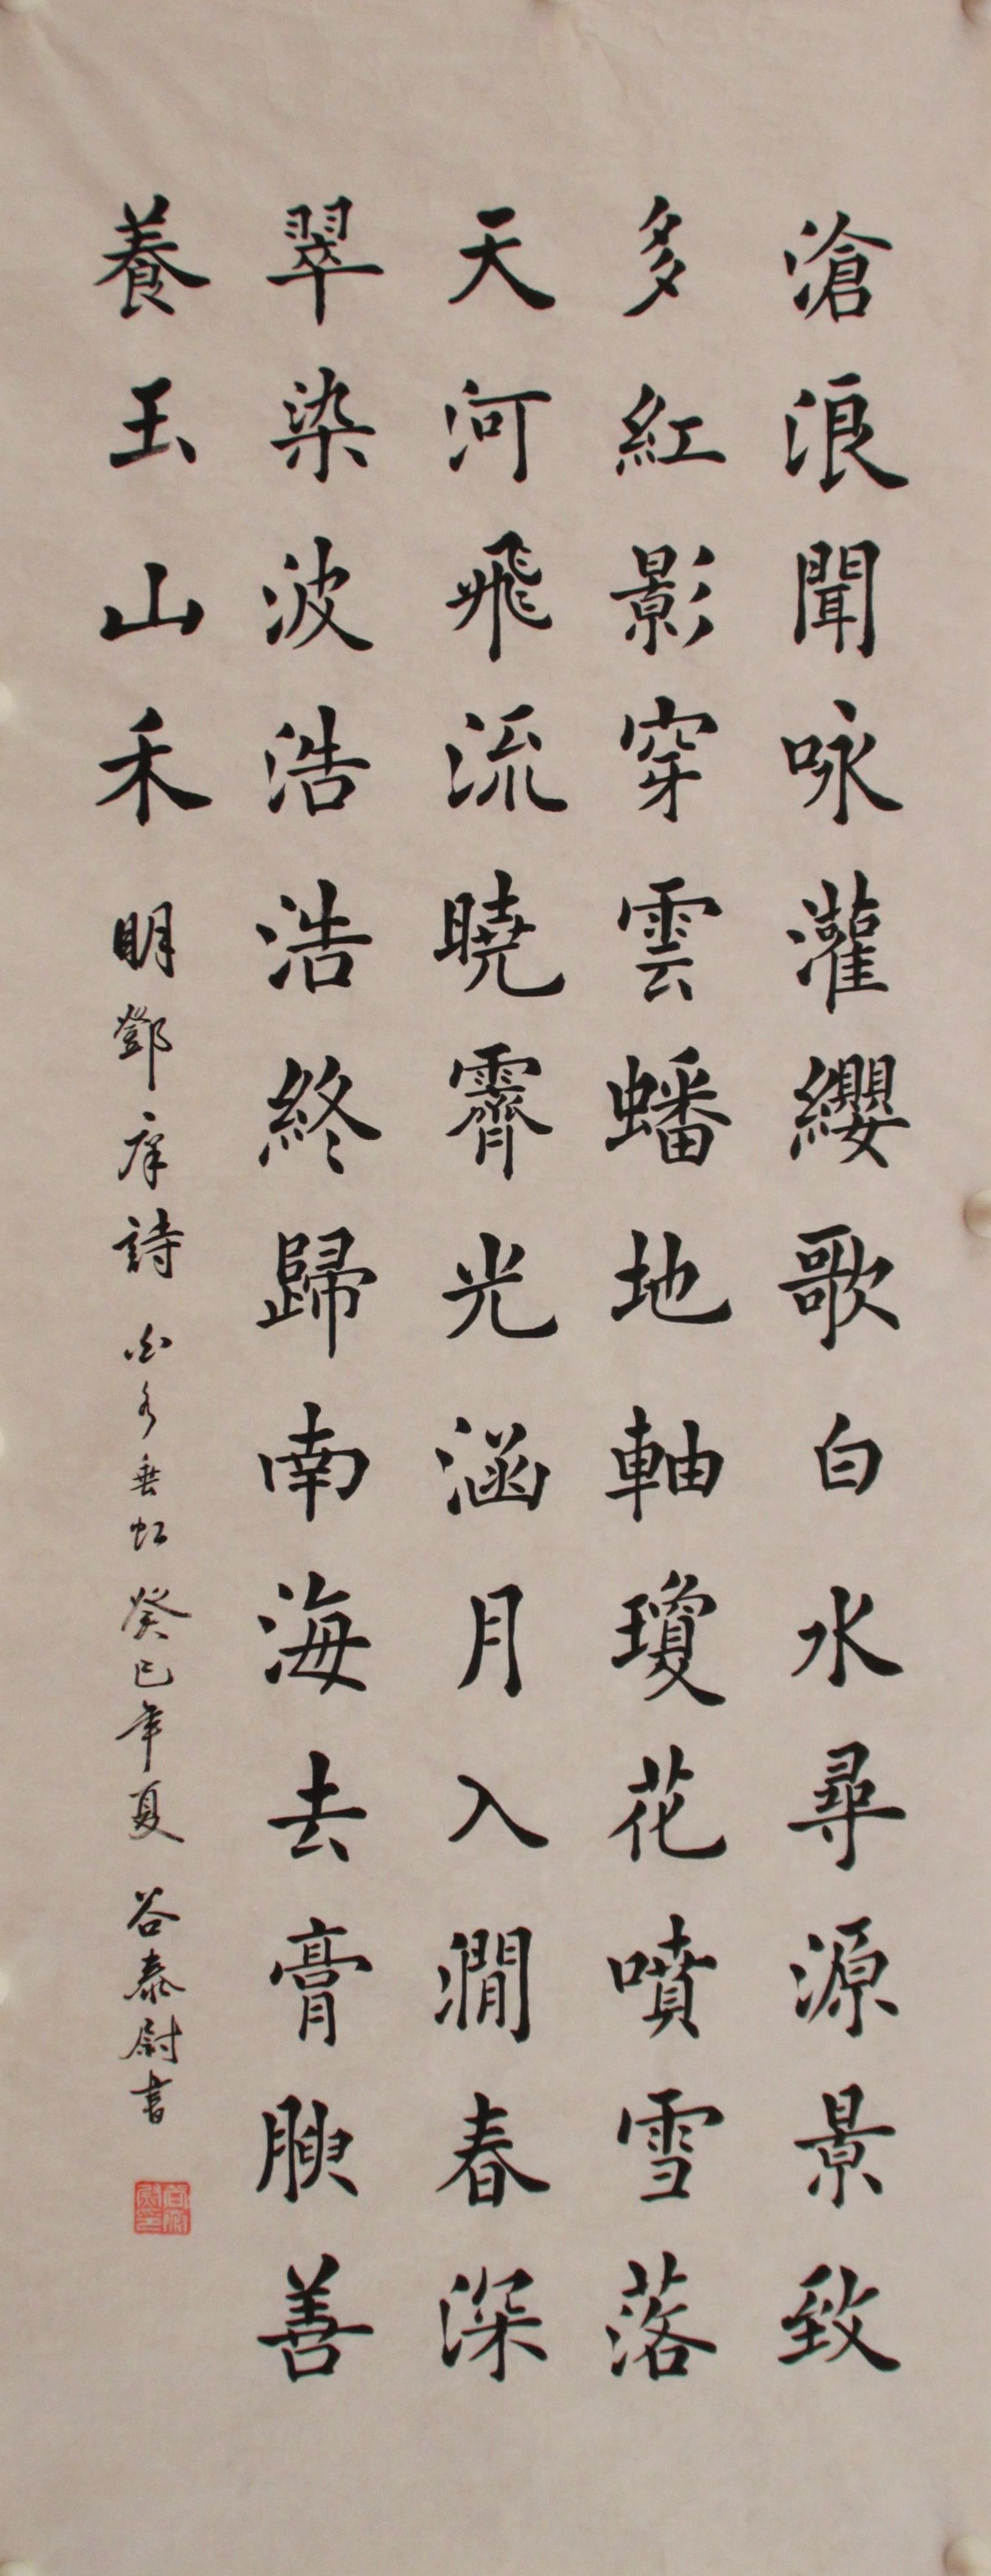 滄浪聞咏灌纓歌白水尋源景致
多紅影穿雲蟠地軸瓊花噴雪落
天河飛流曉霽光涵月入澗春深
翠染波浩浩終歸南海去膏腴善
養玉山禾
明鄧庠詩 白水垂虹 癸巳年夏 谷泰尉書